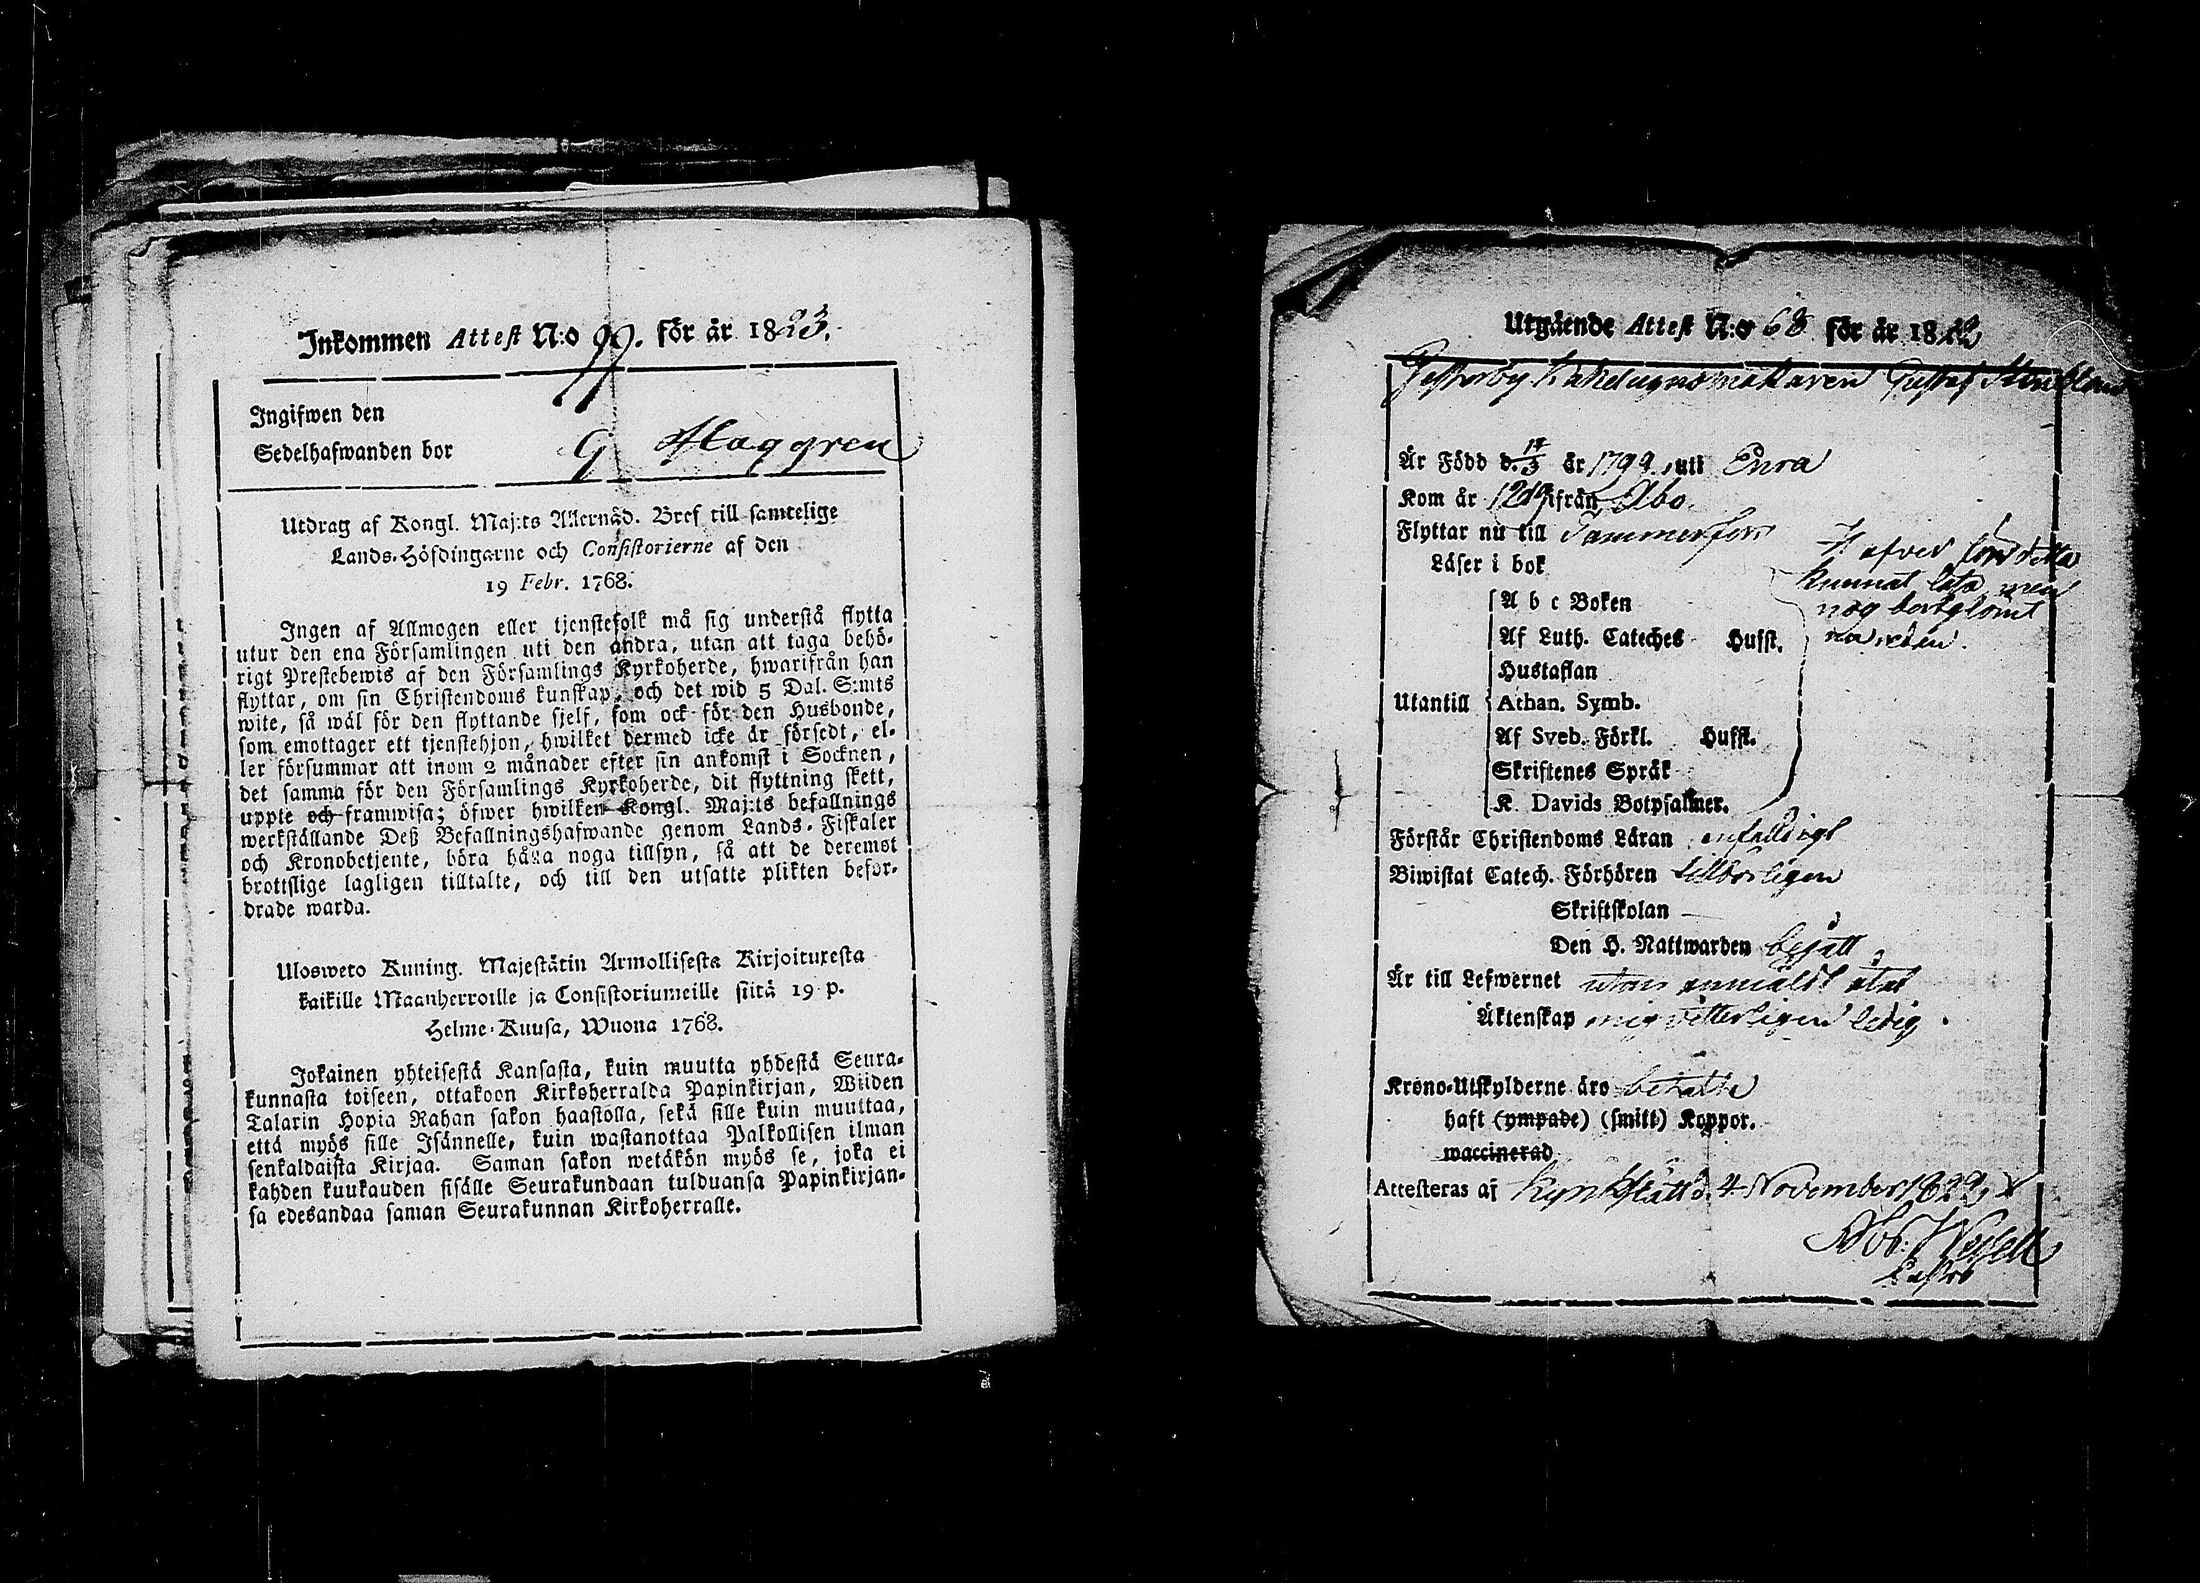 Inkommen Attest N:o 99. för år 1823.
Ingifwen den
Sedelhafwanden bor G Haggren
Utdrag af Kongl. Maj:ts Allernåd. Bref till samtelige
Lands-Höfdingarne och Consistorierne af den
19 Febr. 1768.
Ingen af Allmogen eller tjenstefolk må sig understå flytta
utur den ena Församlingen uti den andra, utan att taga behö-
rigt Prestebewis af den Församlings Kyrkoherde, hwarifrån han
flyttar, om sin Christendoms kunskap, och det wid 5 Dal. S:mts
wite, så wäl för den flyttande sjelf, som ock för den Husbonde,
som emottager ett tjenstehjon, hwilket dermed icke är försedt, el-
ler försummar att inom 2 månader efter sin ankomst i Socknen,
det samma för den Församlings Kyrkoherde, dit flyttning skett,
uppte och framwisa; öfwer hwilken Kongl. Maj:ts befallnings
werkställande Deß Befallningshafwande genom Lands-Fiskaler
och Kronobetjente, böra hålla noga tillsyn, så att de deremot
brottslige lagligen tilltalte, och till den utsatte plikten befor-
drade warda.
Ulosweto Kuning. Majestätin Armollisesta Kirjoituxesta
kaikille Maanherroille ja Consistoriumeille siitä 19 p.
Helme-Kuusa, Wuona 1768.
Jokainen yhteisestä Kansasta, kuin muutta yhdestä Seura-
kunnasta toiseen, ottakoon Kirkoherralda Papinkirjan, Wiiden
Talarin Hopia Rahan sakon haastolla, sekä sille kuin muuttaa,
että myös sille Isännelle, kuin wastanottaa Palkollisen ilman
senkaldaista Kirjaa. Saman sakon wetäkön myös se, joka ei
kahden kuukauden sisälle Seurakundaan tulduansa Papinkirjan-
sa edesandaa saman Seurakunnan Kirkoherralle.
Utgående Attest N:o 68 för år 1822
Gesterby Kakelugnsmakaren Gustaf
Är Född d. 17/3 år 1799. uti Eura
Kom år 1819 ifrån Åbo.
Flyttar nu till Tammerfors
Läser i bok
Hafver för detta
kunnat läsa, men
nog bortglömt
A b c Boken
Af Luth. Cateches Hufst.
Hustaflan
Utantill Athan. Symb.
Af Sveb. Förkl. Hufst.
Skriftenes Språk
K. Davids Botpsalmer.
Förstår Christendoms Läran enfaldigt
Biwistat Catech. Förhören tillbörligen
Skriftskolan
Den H. Nattwarden begått,
Är till Lefwernet utan anmäldt
Äktenskap mig vitterligen ledig.
Krono-Utskylderne äro betalte
haft (ympade) (smitt) Koppor.
waccinerad
Attesteras af Kyrkslätt d. 4 November 1822,